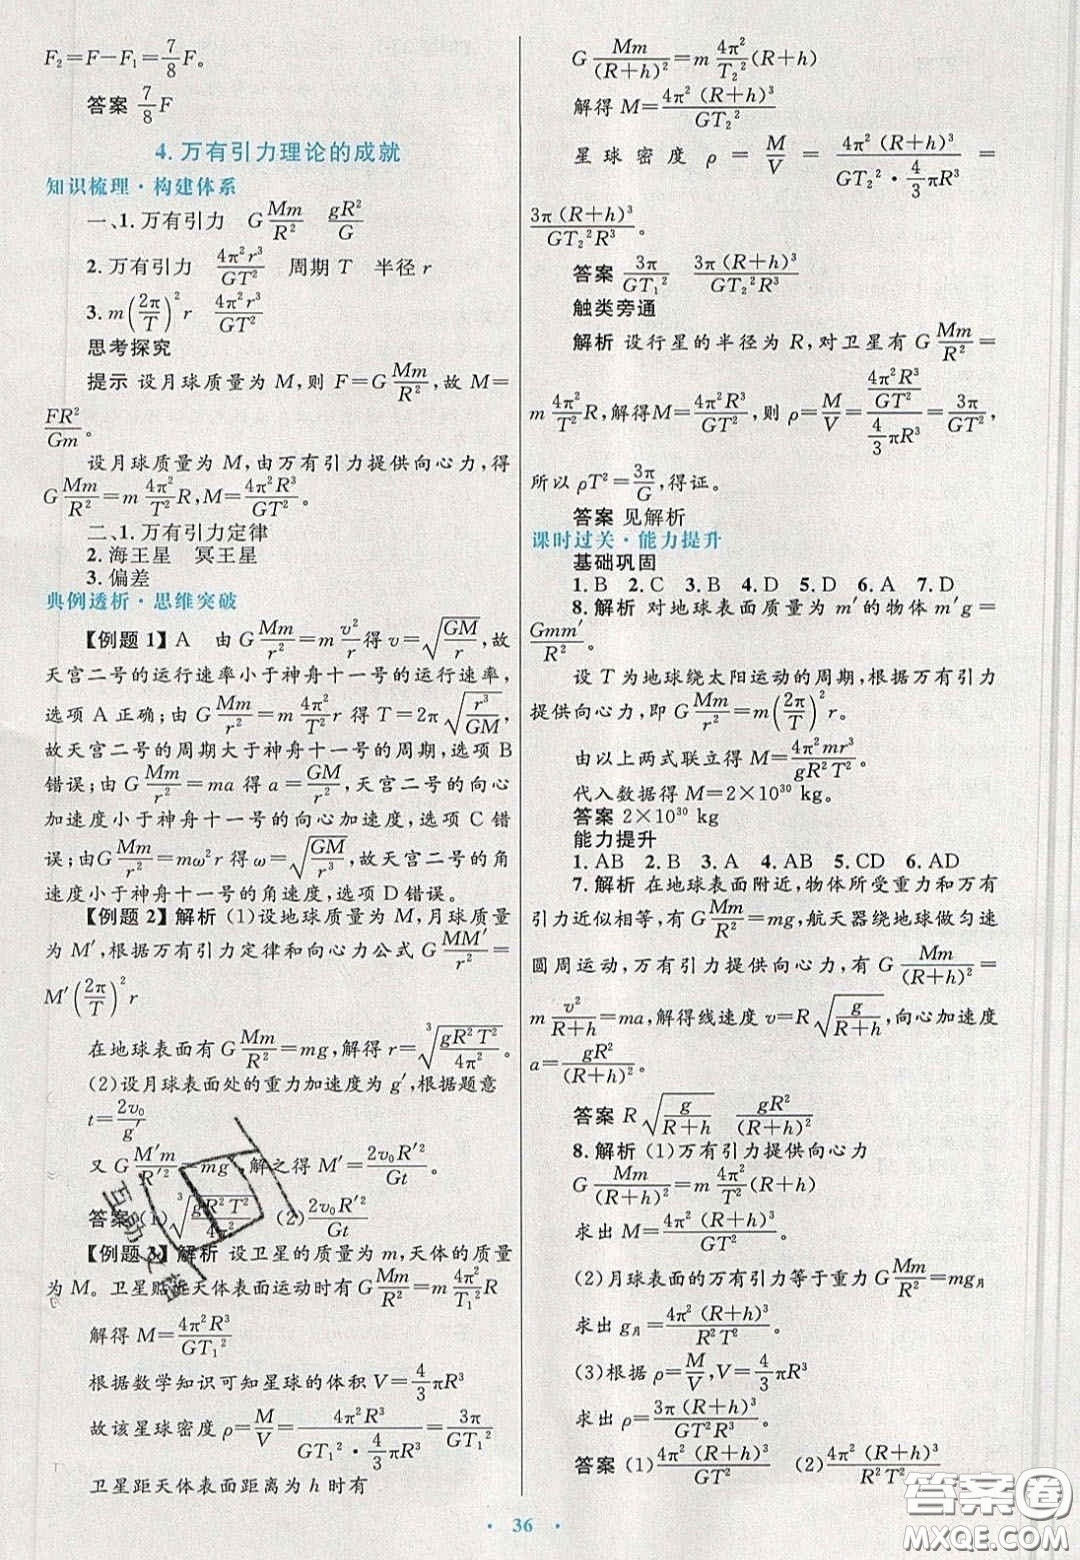 F₂=F−F₁=7/8F。
答案 7/8F
4.万有引力理论的成就
知识梳理·构建体系
一、1.万有引力 G Mm/R² gR²/G
2.万有引力 4π²r³/GT² 周期 T 半径 r
3.m(2π/T)²r 4π²r³/GT²
思考探究
提示 设月球质量为 M,则 F=G Mm/R²,故 M=
FR²/Gm。
设月球质量为 M,由万有引力提供向心力,得
G Mm/R²=m 4π²/T² R,M=4π²R³/GT²。
二、1.万有引力定律
2.海王星 冥王星
3.偏差
典例透析·思维突破
【例题 1】A 由 G Mm/r²=m v²/r 得 v=√(GM/r),故
天宫二号的运行速率小于神舟十一号的运行速率,
选项 A 正确;由 G Mm/r²=m 4π²/T² r 得 T=2π√(r³/GM),
故天宫二号的周期大于神舟十一号的周期,选项 B
错误;由 G Mm/r²=ma 得 a=GM/r²,天宫二号的向心
加速度小于神舟十一号的向心加速度,选项 C 错
误;由G Mm/r²=mω²r 得 ω=√(GM/r³),故天宫二号的角
速度小于神舟十一号的角速度,选项 D 错误。
【例题 2】解析 (1)设地球质量为 M,月球质量
为 M′,根据万有引力定律和向心力公式 G MM′/r²=
M′(2π/T)²r
在地球表面有 G Mm/R²=mg,解得 r=∛(gR²T²/4π²)。
(2)设月球表面处的重力加速度为 g′,根据题意
t=2v₀/g′
又 G M′m/R′²=mg′,解之得 M′=2v₀R′²/Gt。
答案 (1)∛(gR²T²/4π²) (2)2v₀R′²/Gt
【例题 3】解析 设卫星的质量为 m,天体的质量
为 M。卫星贴近天体表面运动时有 G Mm/R²=m 4π²/T₁² R
解得 M=4π²R³/GT₁²
根据数学知识可知星球的体积 V=4/3πR³
故该星球密度 ρ=M/V=4π²R³/(GT₁²·4/3πR³)=3π/GT₁²
卫星距天体表面距离为 h 时有
G Mm/(R+h)²=m 4π²/T₂²(R+h)
解得 M=4π²(R+h)³/GT₂²
星球密度 ρ=M/V=4π²(R+h)³/(GT₂²·4/3πR³)=
3π(R+h)³/GT₂²R³。
答案 3π/GT₁² 3π(R+h)³/GT₂²R³
触类旁通
解析 设行星的半径为 R,对卫星有 G Mm/R²=
m 4π²/T² R,解得M=4π²R³/GT²,则 ρ=M/V=(4π²R³/GT²)/(4/3πR³)=3π/GT²,
所以 ρT²=3π/G,得证。
答案 见解析
课时过关·能力提升
基础巩固
1.B 2.C 3.B 4.D 5.D 6.A 7.D
8.解析 对地球表面质量为 m′的物体 m′g=
Gmm′/R²。
设 T 为地球绕太阳运动的周期,根据万有引力
提供向心力,即 G Mm/r²=m(2π/T)²r。
由以上两式联立得 M=4π²mr³/gR²T²。
代入数据得 M=2×10³⁰ kg。
答案 2×10³⁰ kg
能力提升
1.AB 2.B 3.A 4.AB 5.CD 6.AD
7.解析 在地球表面附近,物体所受重力和万有
引力近似相等,有 G Mm/R²=mg,航天器绕地球做匀速
圆周运动,万有引力提供向心力,有 G Mm/(R+h)²=
m v²/(R+h)=ma,解得线速度 v=R√(g/(R+h)),向心加速度
a=gR²/(R+h)²。
答案 R√(g/(R+h)) gR²/(R+h)²
8.解析 (1)万有引力提供向心力
G Mm/(R+h)²=m 4π²/T²(R+h)
求出 M=4π²(R+h)³/GT²。
(2)月球表面的万有引力等于重力G Mm/R²=mg月
求出 g月=4π²(R+h)³/R²T²。
(3)根据 ρ=M/V,V=4/3πR³
求出 ρ=3π(R+h)³/GT²R³。
答案 (1)4π²(R+h)³/GT² (2)4π²(R+h)³/R²T²
· 36 ·
答案圈
MXQE.COM